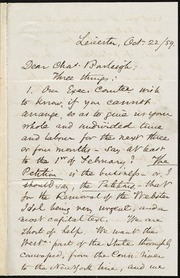 Leicester, Oct. 22/59.
Dear Chas. Burleigh:
Three things:
1. Our Exec. Comtee wish
to know, if you cannot
arrange so as to give us your
whole and undivided time
and labour for the next three
or four months — say, at least
to the 1st of February? The
Petition is the business — or, I
should say, the Petitions — that
for the Removal of the Webster
Idol being very urgent, and
most capital text. We are
short of help. We want the
West'n part of the State thoroughly
canvassed, from the Conn. river
to the New York line, and on